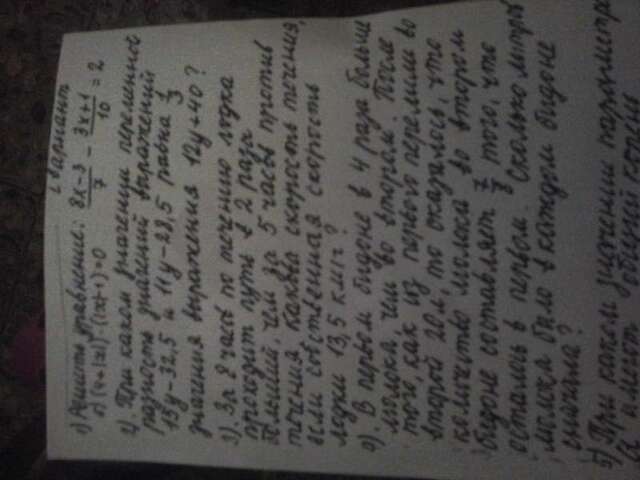 1 вариант
1) Решить уравнение: (8x-3)/7 - (3x+1)/10 = 2
б) (4+|x|)·(|x|-1)=0
2) При каком значении переменной
разность значений выражений
15y-32,5 и 11y-28,5 равна 1/3
значения выражения 12y+40?
3) За 8 часов по течению лодка
проходит путь в 2 раза
больший, чем за 5 часов против
течения. Какова скорость течения,
если собственная скорость
лодки 13,5 км/ч?
4) В первом бидоне в 4 раза больше
молока, чем во втором. После
того, как из первого перелили во
второй 20л, то оказалось, что
количество молока во втором
бидоне составляет 7/8 того, что
осталось в первом. Сколько литров
молока было в каждом бидоне
сначала?
5) При каком значении параметра